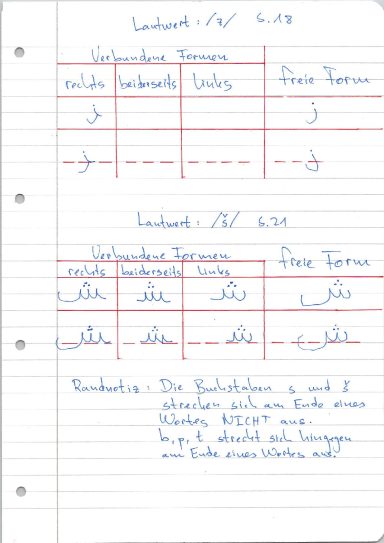 Lautwert: /z/ S.18
Verbundene Formen
rechts beiderseits links freie Form
ز ز
ز ز
Lautwert: /š/ S.21
Verbundene Formen freie Form
rechts beiderseits links
ـش ـشـ شـ ش
ـش ـشـ شـ ش
Randnotiz: Die Buchstaben s und š
strecken sich am Ende eines
Wortes NICHT aus.
b, p, t streckt sich hingegen
am Ende eines Wortes aus.